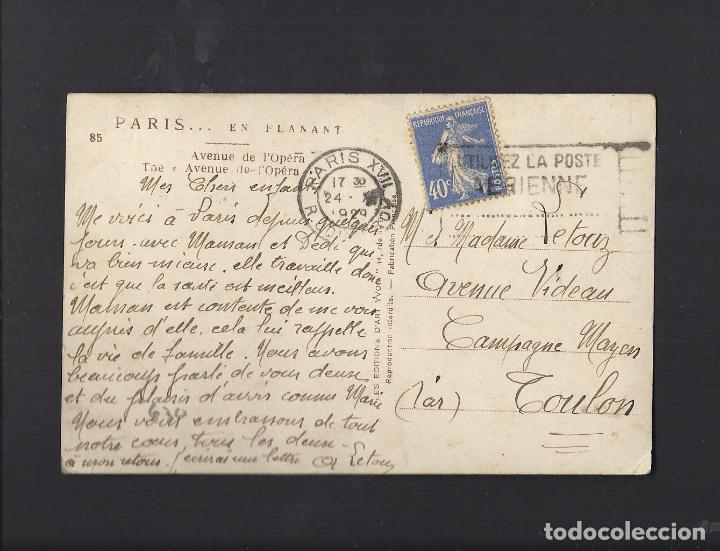 85 PARIS... EN FLANANT
Avenue de l'Opéra
The « Avenue de l'Opéra
Mes Chers enfants
Me voici à Paris depuis quelques
jours avec Maman et Dédé qui
va bien mieux. elle travaille donc
c'est que la santé est meilleure.
Maman est contente de me voir
auprès d'elle, cela lui rappelle
la vie de famille. Nous avons
beaucoup parlé de vous deux
et du plaisir d'avoir connu Marie
Nous vous embrassons de tout
notre cœur tous les deux
à mon retour j'écrirai une lettre Letouz
630
PARIS XVII
17 30
24
1929
REPUBLIQUE FRANÇAISE
40c
POSTES
UTILISEZ LA POSTE
AERIENNE
LES EDITIONS D'ART "YVON"
Reproduction interdite. — Fabrication Française
M et Madame Letouz
Avenue Videau
Campagne
(Var) Toulon
todocoleccion